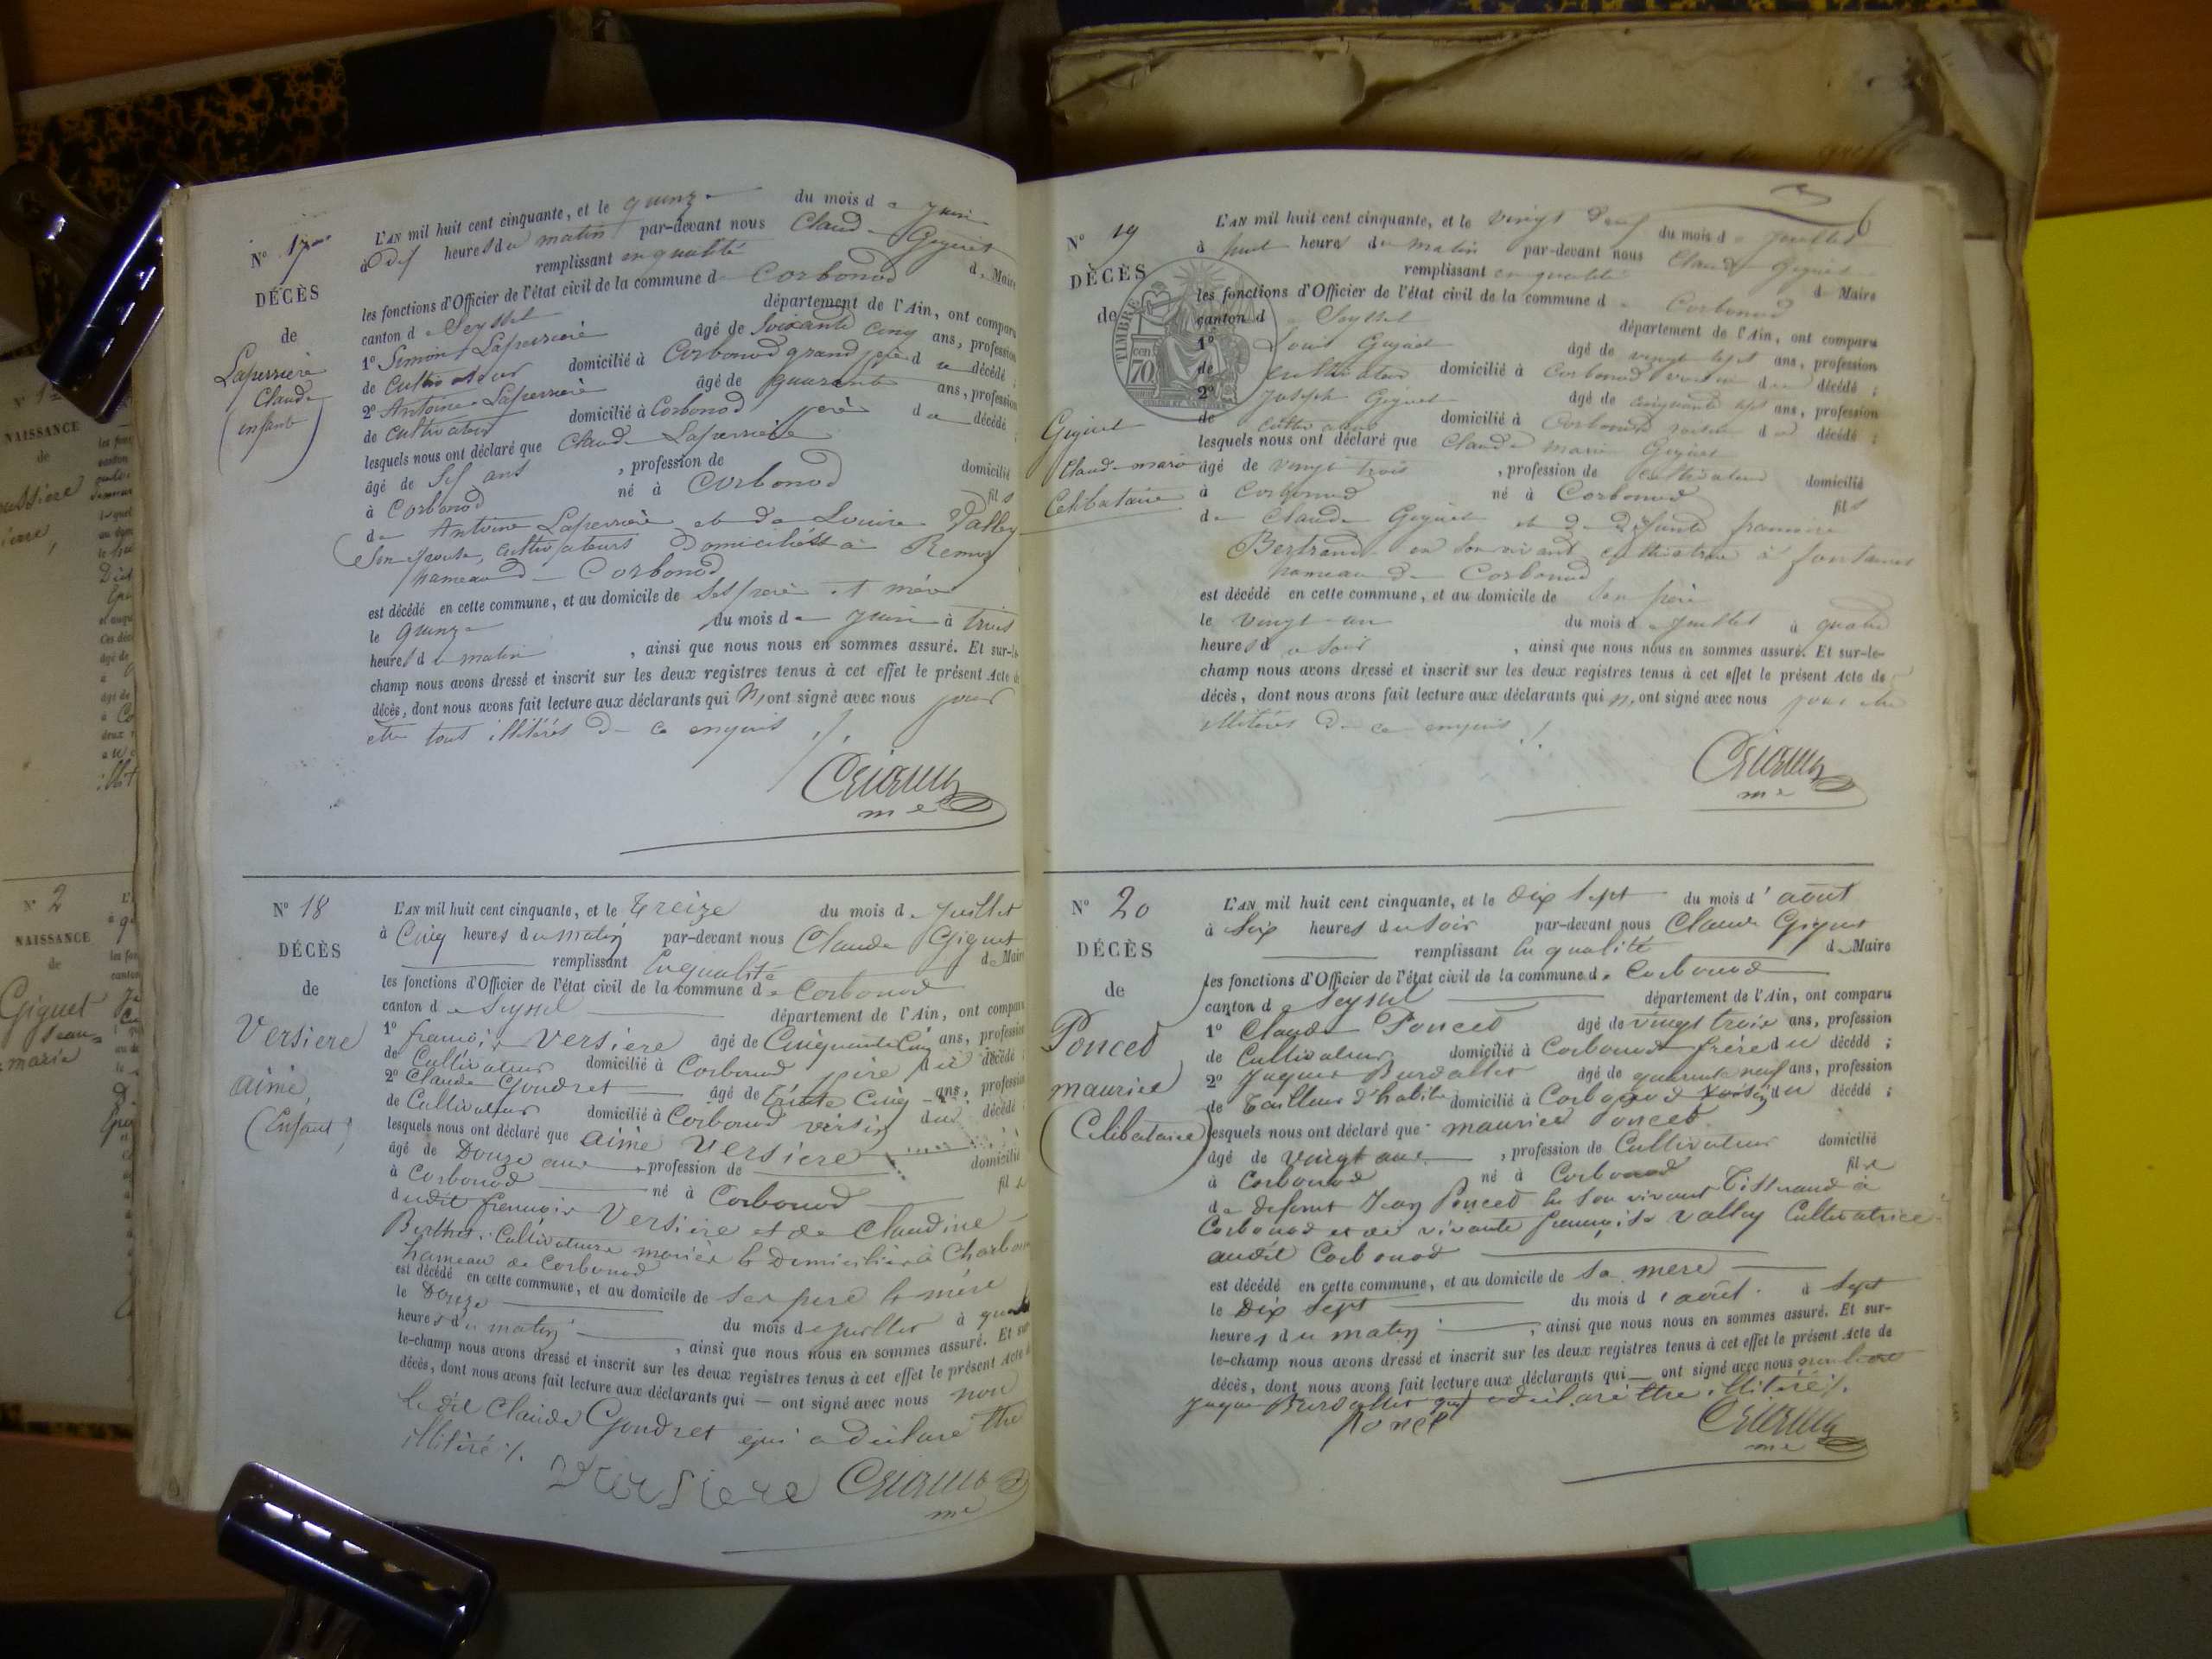 N° 17
DÉCÈS
de
Laperrière
Claude
(enfant)
L'AN mil huit cent cinquante, et le quinze du mois de juin
à heures du matin par-devant nous Claude Giguet
remplissant en qualité de Maire
les fonctions d'Officier de l'état civil de la commune de Corbonod
canton de Seyssel département de l'Ain, ont comparu
1° Simon Laperrière âgé de soixante cinq ans, profession
de cultivateur domicilié à Corbonod grand père du décédé ;
2° Antoine Laperrière âgé de quarante ans, profession
de cultivateur domicilié à Corbonod père du décédé ;
lesquels nous ont déclaré que Claude Laperrière
âgé de ans , profession de domicilié
à Corbonod né à Corbonod fils
de Antoine Laperrière et de Louise Valley
son épouse, cultivateurs domiciliés à
hameau de Corbonod
est décédé en cette commune, et au domicile de ses père et mère
le quinze du mois de juin à trois
heures du matin , ainsi que nous nous en sommes assuré. Et sur-le-
champ nous avons dressé et inscrit sur les deux registres tenus à cet effet le présent Acte de
décès, dont nous avons fait lecture aux déclarants qui n'ont signé avec nous pour
être tout illitérés de ce enquis ./.
me
N° 18
DÉCÈS
de
Versiere
aimé,
(Enfant)
L'AN mil huit cent cinquante, et le treize du mois de juillet
à Cinq heures du matin par-devant nous Claude Giguet
remplissant en qualité de Maire
les fonctions d'Officier de l'état civil de la commune de Corbonod
canton de Seyssel département de l'Ain, ont comparu
1° françois Versiere âgé de Cinquante Cinq ans, profession
de Cultivateur domicilié à Corbonod père du décédé ;
2° Claude Goudret âgé de trente Cinq ans, profession
de Cultivateur domicilié à Corbonod voisin du décédé ;
lesquels nous ont déclaré que aimé Versiere
âgé de Douze ans , profession de domicilié
à Corbonod né à Corbonod fils
dudit françois Versiere et de Claudine
Berthet Cultivateurs mariés et Domiciliés à
hameau de Corbonod
est décédé en cette commune, et au domicile de ses père et mère
le Douze du mois de juillet à
heures du matin , ainsi que nous nous en sommes assuré. Et sur-
le-champ nous avons dressé et inscrit sur les deux registres tenus à cet effet le présent Acte de
décès, dont nous avons fait lecture aux déclarants qui — ont signé avec nous non
le dit Claude Goudret qui a déclaré être
illitéré ./.
Versiere
me
N° 19
DÉCÈS
de
Giguet
Claude marie
Célibataire
TIMBRE
70 cen
L'AN mil huit cent cinquante, et le vingt deux du mois de juillet
à huit heures du matin par-devant nous Claude Giguet
remplissant en qualité de Maire
les fonctions d'Officier de l'état civil de la commune de Corbonod
canton de Seyssel département de l'Ain, ont comparu
1° Louis Giguet âgé de vingt sept ans, profession
de cultivateur domicilié à Corbonod voisin du décédé ;
2° Joseph Giguet âgé de cinquante sept ans, profession
de cultivateur domicilié à Corbonod voisin du décédé ;
lesquels nous ont déclaré que Claude marie Giguet
âgé de vingt trois , profession de cultivateur domicilié
à Corbonod né à Corbonod fils
de Claude Giguet et de défunte françoise
Bertrand en son vivant cultivatrice à
hameau de Corbonod
est décédé en cette commune, et au domicile de son père
le vingt-un du mois de juillet à quatre
heures du soir , ainsi que nous nous en sommes assuré. Et sur-le-
champ nous avons dressé et inscrit sur les deux registres tenus à cet effet le présent Acte de
décès, dont nous avons fait lecture aux déclarants qui n'ont signé avec nous pour être
illitérés de ce enquis ./.
me
N° 20
DÉCÈS
de
Poncet
maurice
(Célibataire)
L'AN mil huit cent cinquante, et le dix sept du mois d'août
à six heures du soir par-devant nous Claude Giguet
remplissant en qualité de Maire
les fonctions d'Officier de l'état civil de la commune de Corbonod
canton de Seyssel département de l'Ain, ont comparu
1° Claude Poncet âgé de vingt trois ans, profession
de Cultivateur domicilié à Corbonod frère du décédé ;
2° Jaques Burdallet âgé de quarante neuf ans, profession
de Tailleur d'habits domicilié à Corbonod voisin du décédé ;
lesquels nous ont déclaré que maurice Poncet
âgé de vingt ans , profession de Cultivateur domicilié
à Corbonod né à Corbonod fils
de defunt Jean Poncet en son vivant Tisserand à
Corbonod et de vivante françoise Valley Cultivatrice
audit Corbonod
est décédé en cette commune, et au domicile de sa mère
le Dix Sept du mois d'août à Sept
heures du matin , ainsi que nous nous en sommes assuré. Et sur-
le-champ nous avons dressé et inscrit sur les deux registres tenus à cet effet le présent Acte de
décès, dont nous avons fait lecture aux déclarants qui — ont signé avec nous
Jaques Burdallet qui a déclaré être illitéré ./.
Poncet
me
N° 2
NAISSANCE
de
Giguet
Jean-
marie